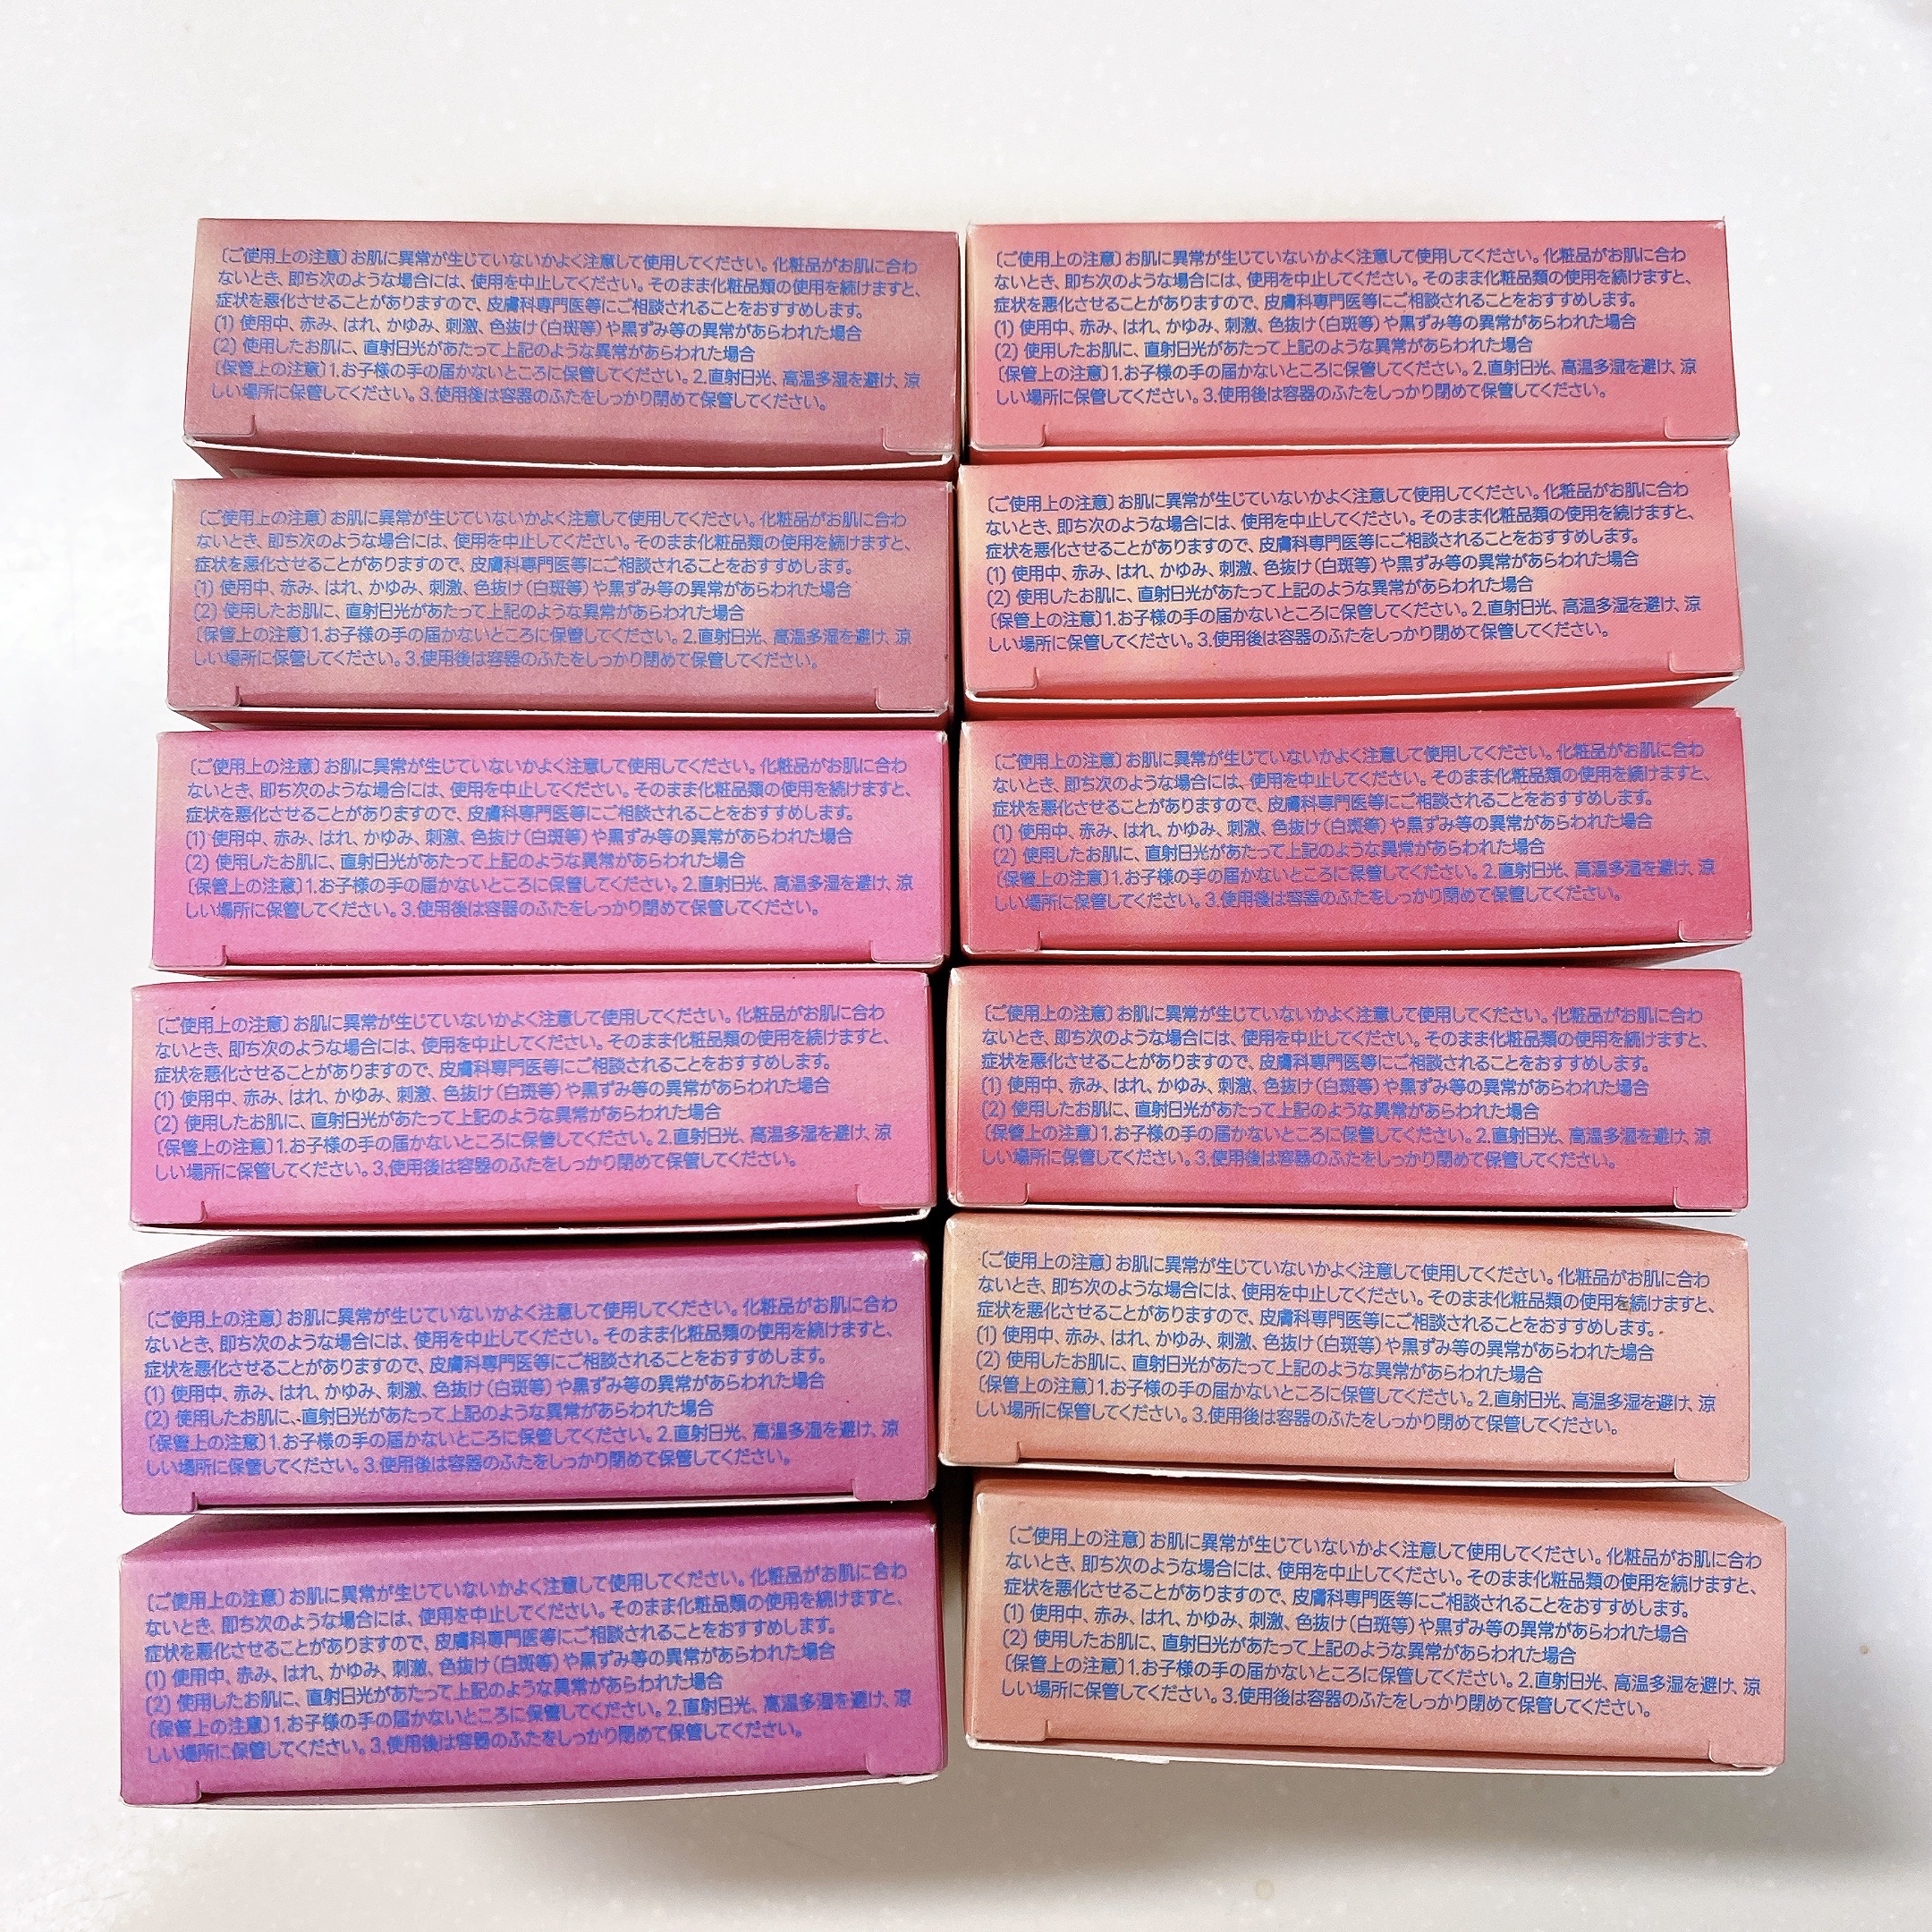 〔ご使用上の注意〕お肌に異常が生じていないかよく注意して使用してください。化粧品がお肌に合わ
ないとき、即ち次のような場合には、使用を中止してください。そのまま化粧品類の使用を続けますと、
症状を悪化させることがありますので、皮膚科専門医等にご相談されることをおすすめします。
(1) 使用中、赤み、はれ、かゆみ、刺激、色抜け(白斑等)や黒ずみ等の異常があらわれた場合
(2) 使用したお肌に、直射日光があたって上記のような異常があらわれた場合
〔保管上の注意〕1.お子様の手の届かないところに保管してください。2.直射日光、高温多湿を避け、涼
しい場所に保管してください。3.使用後は容器のふたをしっかり閉めて保管してください。
〔ご使用上の注意〕お肌に異常が生じていないかよく注意して使用してください。化粧品がお肌に合わ
ないとき、即ち次のような場合には、使用を中止してください。そのまま化粧品類の使用を続けますと、
症状を悪化させることがありますので、皮膚科専門医等にご相談されることをおすすめします。
(1) 使用中、赤み、はれ、かゆみ、刺激、色抜け(白斑等)や黒ずみ等の異常があらわれた場合
(2) 使用したお肌に、直射日光があたって上記のような異常があらわれた場合
〔保管上の注意〕1.お子様の手の届かないところに保管してください。2.直射日光、高温多湿を避け、涼
しい場所に保管してください。3.使用後は容器のふたをしっかり閉めて保管してください。
〔ご使用上の注意〕お肌に異常が生じていないかよく注意して使用してください。化粧品がお肌に合わ
ないとき、即ち次のような場合には、使用を中止してください。そのまま化粧品類の使用を続けますと、
症状を悪化させることがありますので、皮膚科専門医等にご相談されることをおすすめします。
(1) 使用中、赤み、はれ、かゆみ、刺激、色抜け(白斑等)や黒ずみ等の異常があらわれた場合
(2) 使用したお肌に、直射日光があたって上記のような異常があらわれた場合
〔保管上の注意〕1.お子様の手の届かないところに保管してください。2.直射日光、高温多湿を避け、涼
しい場所に保管してください。3.使用後は容器のふたをしっかり閉めて保管してください。
〔ご使用上の注意〕お肌に異常が生じていないかよく注意して使用してください。化粧品がお肌に合わ
ないとき、即ち次のような場合には、使用を中止してください。そのまま化粧品類の使用を続けますと、
症状を悪化させることがありますので、皮膚科専門医等にご相談されることをおすすめします。
(1) 使用中、赤み、はれ、かゆみ、刺激、色抜け(白斑等)や黒ずみ等の異常があらわれた場合
(2) 使用したお肌に、直射日光があたって上記のような異常があらわれた場合
〔保管上の注意〕1.お子様の手の届かないところに保管してください。2.直射日光、高温多湿を避け、涼
しい場所に保管してください。3.使用後は容器のふたをしっかり閉めて保管してください。
〔ご使用上の注意〕お肌に異常が生じていないかよく注意して使用してください。化粧品がお肌に合わ
ないとき、即ち次のような場合には、使用を中止してください。そのまま化粧品類の使用を続けますと、
症状を悪化させることがありますので、皮膚科専門医等にご相談されることをおすすめします。
(1) 使用中、赤み、はれ、かゆみ、刺激、色抜け(白斑等)や黒ずみ等の異常があらわれた場合
(2) 使用したお肌に、直射日光があたって上記のような異常があらわれた場合
〔保管上の注意〕1.お子様の手の届かないところに保管してください。2.直射日光、高温多湿を避け、涼
しい場所に保管してください。3.使用後は容器のふたをしっかり閉めて保管してください。
〔ご使用上の注意〕お肌に異常が生じていないかよく注意して使用してください。化粧品がお肌に合わ
ないとき、即ち次のような場合には、使用を中止してください。そのまま化粧品類の使用を続けますと、
症状を悪化させることがありますので、皮膚科専門医等にご相談されることをおすすめします。
(1) 使用中、赤み、はれ、かゆみ、刺激、色抜け(白斑等)や黒ずみ等の異常があらわれた場合
(2) 使用したお肌に、直射日光があたって上記のような異常があらわれた場合
〔保管上の注意〕1.お子様の手の届かないところに保管してください。2.直射日光、高温多湿を避け、涼
しい場所に保管してください。3.使用後は容器のふたをしっかり閉めて保管してください。
〔ご使用上の注意〕お肌に異常が生じていないかよく注意して使用してください。化粧品がお肌に合わ
ないとき、即ち次のような場合には、使用を中止してください。そのまま化粧品類の使用を続けますと、
症状を悪化させることがありますので、皮膚科専門医等にご相談されることをおすすめします。
(1) 使用中、赤み、はれ、かゆみ、刺激、色抜け(白斑等)や黒ずみ等の異常があらわれた場合
(2) 使用したお肌に、直射日光があたって上記のような異常があらわれた場合
〔保管上の注意〕1.お子様の手の届かないところに保管してください。2.直射日光、高温多湿を避け、涼
しい場所に保管してください。3.使用後は容器のふたをしっかり閉めて保管してください。
〔ご使用上の注意〕お肌に異常が生じていないかよく注意して使用してください。化粧品がお肌に合わ
ないとき、即ち次のような場合には、使用を中止してください。そのまま化粧品類の使用を続けますと、
症状を悪化させることがありますので、皮膚科専門医等にご相談されることをおすすめします。
(1) 使用中、赤み、はれ、かゆみ、刺激、色抜け(白斑等)や黒ずみ等の異常があらわれた場合
(2) 使用したお肌に、直射日光があたって上記のような異常があらわれた場合
〔保管上の注意〕1.お子様の手の届かないところに保管してください。2.直射日光、高温多湿を避け、涼
しい場所に保管してください。3.使用後は容器のふたをしっかり閉めて保管してください。
〔ご使用上の注意〕お肌に異常が生じていないかよく注意して使用してください。化粧品がお肌に合わ
ないとき、即ち次のような場合には、使用を中止してください。そのまま化粧品類の使用を続けますと、
症状を悪化させることがありますので、皮膚科専門医等にご相談されることをおすすめします。
(1) 使用中、赤み、はれ、かゆみ、刺激、色抜け(白斑等)や黒ずみ等の異常があらわれた場合
(2) 使用したお肌に、直射日光があたって上記のような異常があらわれた場合
〔保管上の注意〕1.お子様の手の届かないところに保管してください。2.直射日光、高温多湿を避け、涼
しい場所に保管してください。3.使用後は容器のふたをしっかり閉めて保管してください。
〔ご使用上の注意〕お肌に異常が生じていないかよく注意して使用してください。化粧品がお肌に合わ
ないとき、即ち次のような場合には、使用を中止してください。そのまま化粧品類の使用を続けますと、
症状を悪化させることがありますので、皮膚科専門医等にご相談されることをおすすめします。
(1) 使用中、赤み、はれ、かゆみ、刺激、色抜け(白斑等)や黒ずみ等の異常があらわれた場合
(2) 使用したお肌に、直射日光があたって上記のような異常があらわれた場合
〔保管上の注意〕1.お子様の手の届かないところに保管してください。2.直射日光、高温多湿を避け、涼
しい場所に保管してください。3.使用後は容器のふたをしっかり閉めて保管してください。
〔ご使用上の注意〕お肌に異常が生じていないかよく注意して使用してください。化粧品がお肌に合わ
ないとき、即ち次のような場合には、使用を中止してください。そのまま化粧品類の使用を続けますと、
症状を悪化させることがありますので、皮膚科専門医等にご相談されることをおすすめします。
(1) 使用中、赤み、はれ、かゆみ、刺激、色抜け(白斑等)や黒ずみ等の異常があらわれた場合
(2) 使用したお肌に、直射日光があたって上記のような異常があらわれた場合
〔保管上の注意〕1.お子様の手の届かないところに保管してください。2.直射日光、高温多湿を避け、涼
しい場所に保管してください。3.使用後は容器のふたをしっかり閉めて保管してください。
〔ご使用上の注意〕お肌に異常が生じていないかよく注意して使用してください。化粧品がお肌に合わ
ないとき、即ち次のような場合には、使用を中止してください。そのまま化粧品類の使用を続けますと、
症状を悪化させることがありますので、皮膚科専門医等にご相談されることをおすすめします。
(1) 使用中、赤み、はれ、かゆみ、刺激、色抜け(白斑等)や黒ずみ等の異常があらわれた場合
(2) 使用したお肌に、直射日光があたって上記のような異常があらわれた場合
〔保管上の注意〕1.お子様の手の届かないところに保管してください。2.直射日光、高温多湿を避け、涼
しい場所に保管してください。3.使用後は容器のふたをしっかり閉めて保管してください。